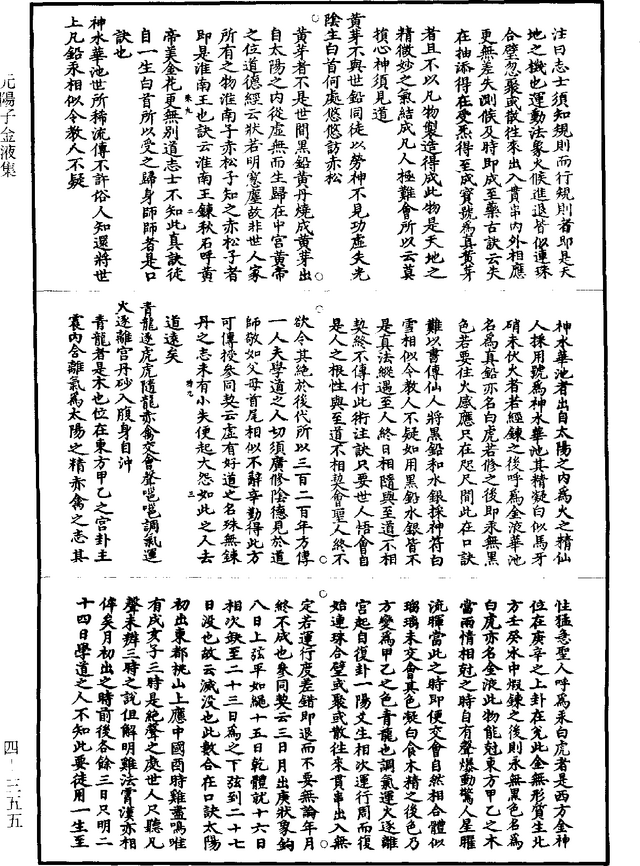 注曰志士須知規則而行規則者即是天
地之機也運動法象火候進退皆似連珠
合璧忽聚或散往來出入貫串內外相應
更無差失測候及時即成至藥古訣云失
在抽添得在受炁得至成寶號為真黃芽
者且不以凡物製造得成此物是天地之
精微妙之氣結成凡人極難會所以云莫
損心神須見道
黃芽不與世鉛同徒以勞神不見功虛失光
陰生白首何處悠悠訪赤松
黃芽者不是世間黑鉛黃丹燒成黃芽出
自太陽之內從虛無而生歸在中宮黃帝
之位道德經云狀若明窻塵故非世人家
所有之物淮南子赤松子知之赤松子者
即是淮南王也訣云淮南王鍊秋石呼黃
帝美金花更無別道志士不知此真訣徒
自一生白首所以受之歸身師師者是口
訣也
神水華池世所稀流傳不許俗人知還將世
上凡鉛汞相似令教人不疑
神水華池者出自太陽之內為火之精仙
人採用號為神水華池其精凝白似馬牙
硝未伏火者若經鍊之後呼為金液華池
名為真鉛亦名白虎若修之後即汞無黑
色若要往火感應只在咫尺間此在口訣
難以書傳仙人將黑鉛和水銀採神符白
雪相似令教人不疑如用黑鉛水銀皆不
是真法縱遇至人終日相隨與至道不相
契終不傳付此術注訣只要世人悟會自
是人之根性與至道不相契會聖人終不
欲令其絕於後代所以三百二百年方傳
一人夫學道之人切須廣修陰德見於道
師敬如父母首尾相似不辭辛勤得此方
可傳授參同契云虛有好道之名殊無鍊
丹之志未有小失便起大怨如此之人去
道遠矣
青龍逐虎虎隨龍赤禽交會聲嗈嗈調氣運
火逐離宮丹砂入腹身自沖
青龍者是木也位在東方甲乙之宮卦主
震內含離氣為太陽之精赤禽之志其
性猛急聖人呼為汞白虎者是西方金神
位在庚辛之上卦在兌此金無形質生北
方壬癸水中煅鍊之後則汞無黑色名為
白虎亦名金液此物能尅東方甲乙之木
當兩情相尅之時自有聲爆動驚人星曜
流暉當此之時即便交會自然相合體似
瑠璃未交會其色凝白食木精之後色乃
方變為甲乙之色青龍也調氣運火逐離
宮起自復卦一陽爻生相次運行周而復
始連珠合璧或聚或散往來貫串出入無
定若運行度差錯即退而不要無論年月
終不成也參同契云三日月出庚狀象鈎
八日上弦平如繩十五日乾體就十六日
相次缺至二十三日為之下弦到二十七
日沒也故云滅沒也此數合在口訣太陽
初出東都桃山上應中國酉時雞盡鳴唯
有戌亥子三時是絕聲之處世人只聽凡
聲未辨三時之說但解明雞法霄漢亦相
俟矣月初出之時前後各餘三日只明二
十四日學道之人不知此要徒用一生至
元陽子金液集
四-三五五